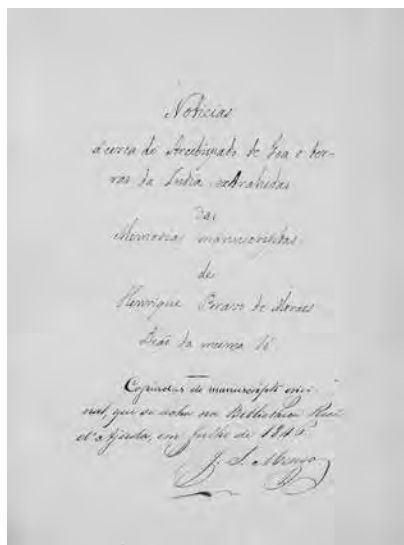 Noticias
ácerca do Arcebispado de Goa e ter-
ras da India extrahidas
das
Memorias manuscriptas
de
Henrique Bravo de Moraes
Deão da mesma Sé
Copiadas do manuscripto origi-
nal, que se acha na Bibliotheca Real
d'Ajuda, em Julho de 1846
J. S.